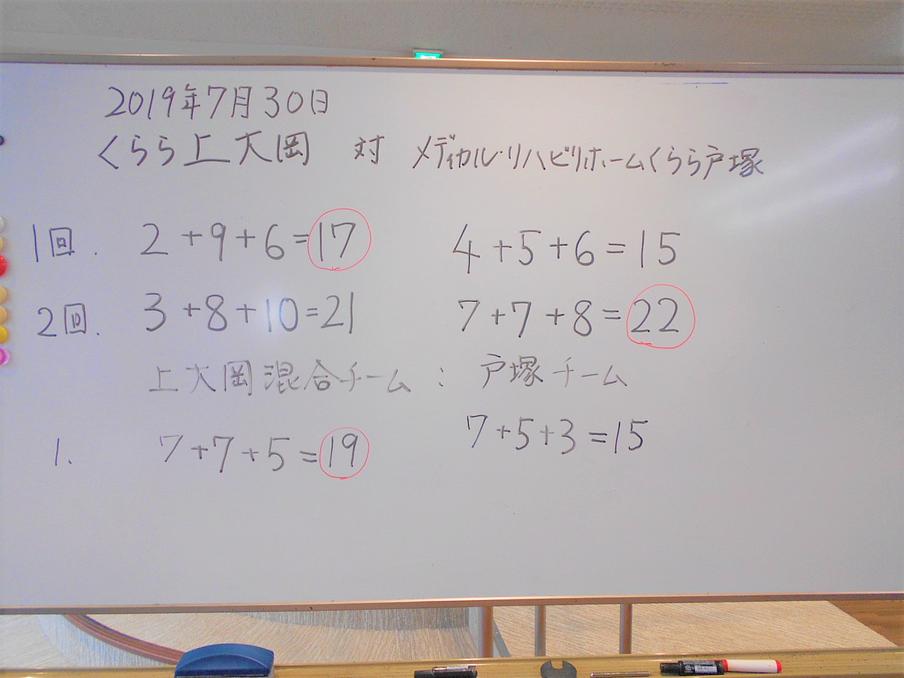 2019年7月30日
くらら上大岡 対 メディカル・リハビリホームくらら戸塚
1回. 2+9+6=17 4+5+6=15
2回. 3+8+10=21 7+7+8=22
上大岡混合チーム : 戸塚チーム
1. 7+7+5=19 7+5+3=15